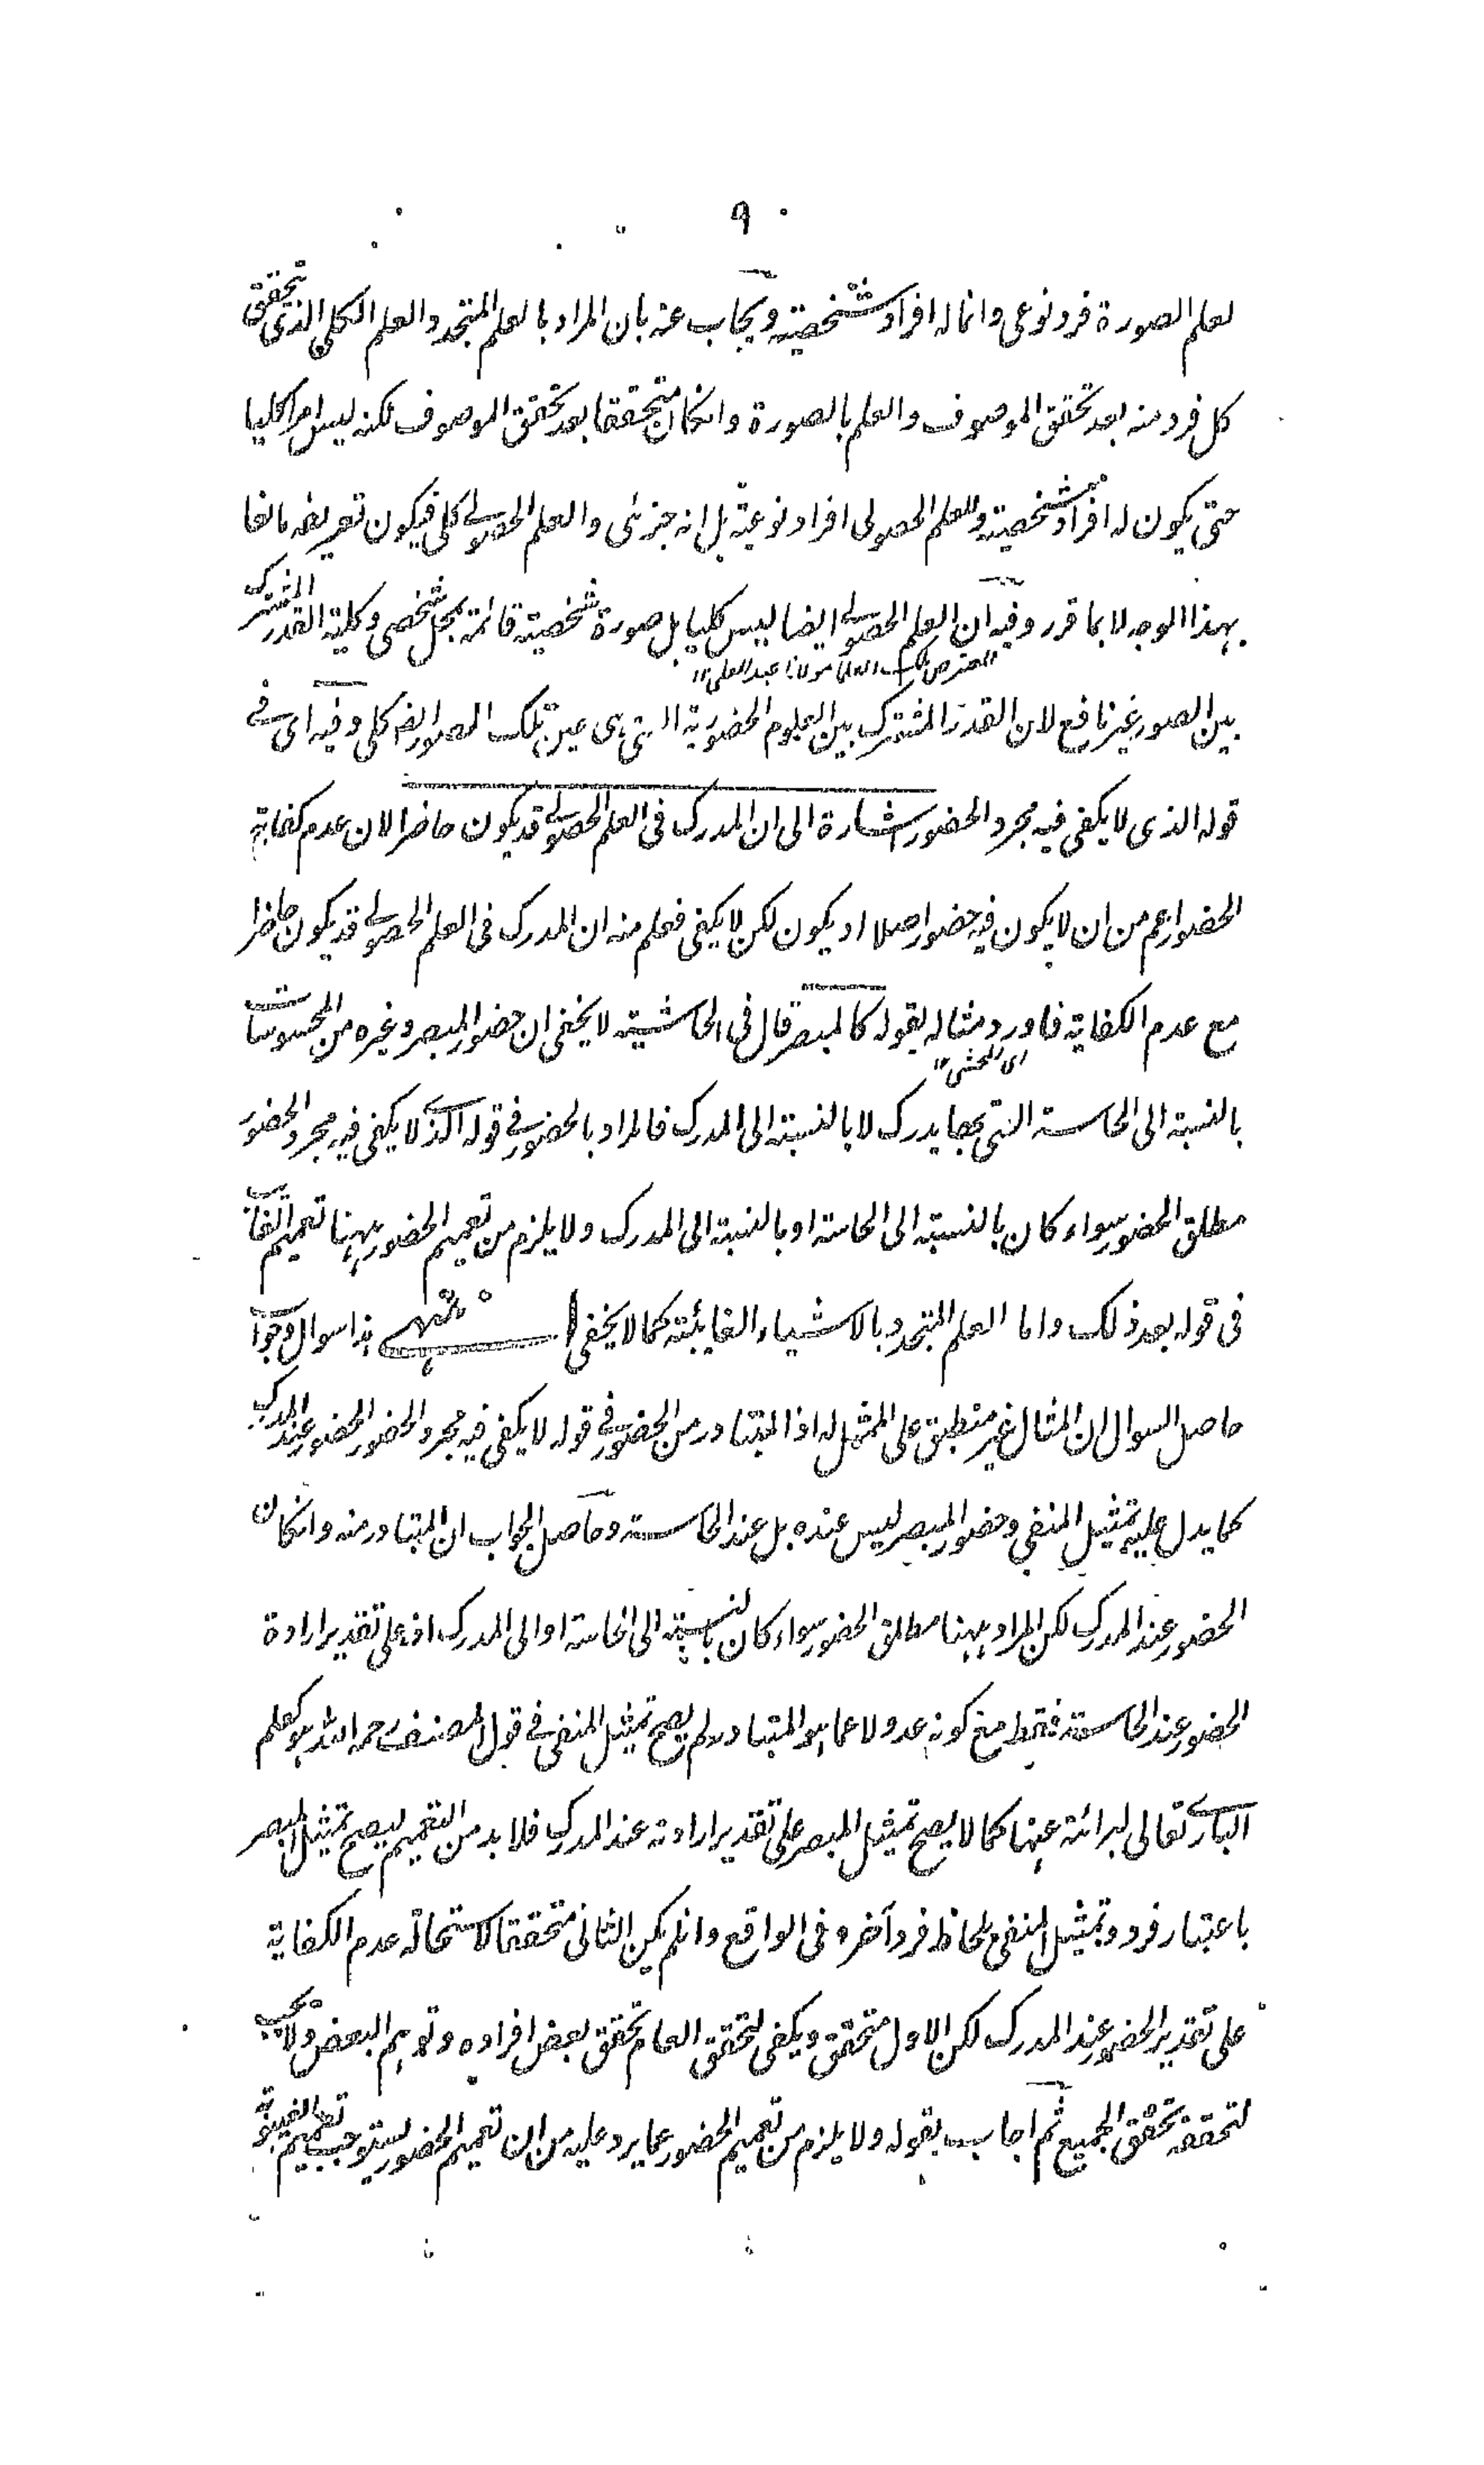 ٩
لعلم الصورة فرد نوعى وانما له افراد شخصية ويجاب عنه بان المراد بالعلم المتجدد العلم الكلى الذى تحقق
كل فرد منه بعد تحقق الموصوف والعلم بالصورة وانكان متحققا بعد تحقق الموصوف لكنه ليس امرا كليا
حتى يكون له افراد شخصية وللعلم الحصولى افراد نوعية بل انه جزئى والعلم الحصولے كلى فيكون تعريفه مانعا
بهذا الوجه لا بما قرر وفيه ان العلم الحصولے ايضا ليس كليا بل صورة شخصية قائمة بمحل شخصى وكلية القدر المشترك
المعترض ملك العلما مولانا عبد العلى
بين الصور غير نافع لان القدر المشترك بين العلوم الحضورية التى هى عين تلك الصور ايضا كلى وفيه اى فے
قوله الذى لا يكفى فيه مجرد الحضور اشارة الى ان المدرك فى العلم الحصولے قد يكون حاضرا لان عدم كفاية
الحضور اعم من ان لا يكون فيه حضور اصلا او يكون لكن لا يكفى فعلم منه ان المدرك فى العلم الحصولے قد يكون حاضرا
مع عدم الكفاية فاورد مثاله بقوله كالمبصر قال فى الحاشية لا يخفى ان حضور المبصر وغيره من المحسوسات
اى المحشى
بالنسبة الى الحاسة التى بها يدرك لا بالنسبة الى المدرك فالمراد بالحضور فے قوله الذے لا يكفى فيه مجرد الحضور
مطلق الحضور سواء كان بالنسبة الى الحاسة او بالنسبة الى المدرك ولا يلزم من تعميم الحضور ههنا تعميم الغائب
فى قوله بعد ذلك واما العلم المتجدد بالاشياء الغائبة كما لا يخفى انتهے هذا سوال وجواب
حاصل السوال ان المثال غير منطبق على الممثل له اذ المتبادر من الحضور فے قوله لا يكفى فيه مجرد الحضور الحضور عند المدرك
كما يدل عليه تمثيل المنفى وحضور المبصر ليس عنده بل عند الحاسة وحاصل الجواب ان المتبادر منه وانكان
الحضور عند المدرك لكن المراد ههنا مطلق الحضور سواء كان بالنسبة الى الحاسة او الى المدرك اذ على تقدير ارادة
الحضور عند الحاسة فقط مع كونه عدولا عما هو المتبادر لم يصح تمثيل المنفى فے قول المصنف رحمه الله هو كعلم
البارے تعالى لبرائته عنها كما لا يصح تمثيل المبصر على تقدير ارادته عند المدرك فلا بد من التعميم ليصح تمثيل المبصر
باعتبار فرد وتمثيل المنفى بلحاظ فرد آخر وفى الواقع وانلم يكن الثانى متحققا لاستحالة عدم الكفاية
على تقدير الحضور عند المدرك لكن الاول متحقق ويكفى لتحقق العام تحقق بعض افراده وتوهم البعض ولا يجب
لتحققه تحقق الجميع ثم اجاب بقوله ولا يلزم من تعميم الحضور عما يرد عليه من ان تعميم الحضور يستوجب تعميم الغيبوبة